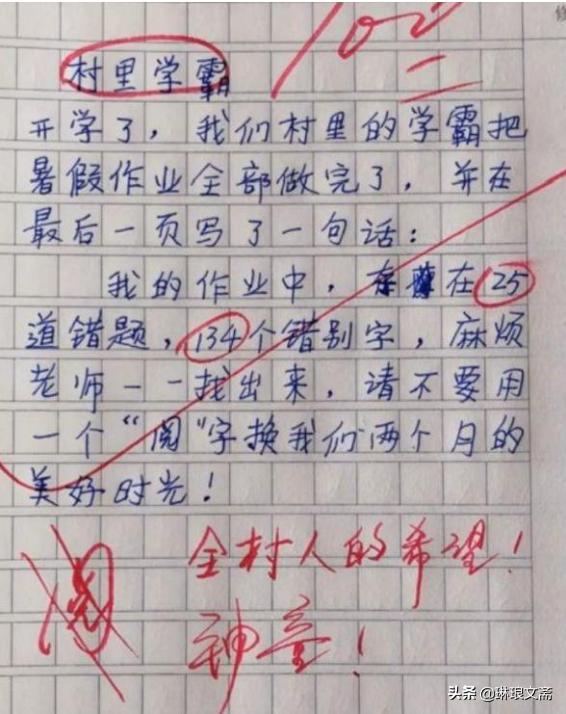 100
村里学霸
开学了，我们村里的学霸把
暑假作业全部做完了，并在
最后一页写了一句话：
我的作业中，存在25
道错题，134个错别字，麻烦
老师一一找出来，请不要用
一个“阅”字换我们两个月的
美好时光！
全村人的希望！
阅
神童！
头条@琳琅文斋